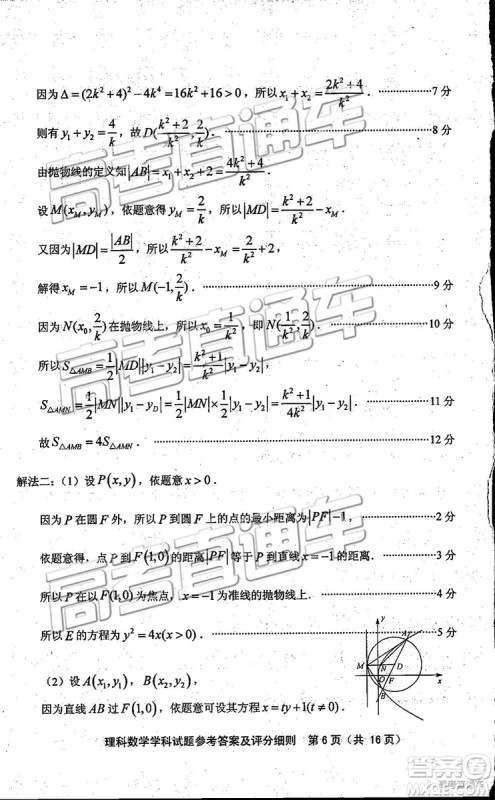 因为Δ=(2k²+4)²−4k⁴=16k²+16>0，所以x₁+x₂=(2k²+4)/k². ……7分
则有y₁+y₂=4/k，故D((k²+2)/k², 2/k). ……8分
由抛物线的定义知|AB|=x₁+x₂+2=(4k²+4)/k².
设M(x_M, y_M)，依题意得y_M=2/k，所以|MD|=(k²+2)/k²−x_M.
又因为|MD|=|AB|/2，所以(k²+2)/k²−x_M=2/k²+2，
解得x_M=−1，所以M(−1, 2/k). ……9分
因为N(x₀, 2/k)在抛物线上，所以x₀=1/k²，即N(1/k², 2/k). ……10分
所以S△AMB=1/2|MD||y₁−y₂|=(k²+1)/k²|y₁−y₂|，
S△AMN=1/2|MN||y₁−y_D|=1/2|MN||1/2(y₁−y₂)|=(k²+1)/4k²|y₁−y₂|. ……11分
故S△AMB=4S△AMN. ……12分
解法二：（1）设P(x,y)，依题意x>0.
因为P在圆F外，所以P到圆F上的点的最小距离为|PF|−1， ……2分
依题意得，点P到F(1,0)的距离|PF|等于P到直线x=−1的距离. ……3分
所以P在以F(1,0)为焦点，x=−1为准线的抛物线上. ……4分
所以E的方程为y²=4x(x>0). ……5分
（2）设A(x₁,y₁)，B(x₂,y₂)，
因为直线AB过F(1,0)，依题意可设其方程x=ty+1(t≠0).
A
M
N
D
O
F
B
x
理科数学学科试题参考答案及评分细则 第6页（共16页）
高考直通车
高考直通车
高考直通车